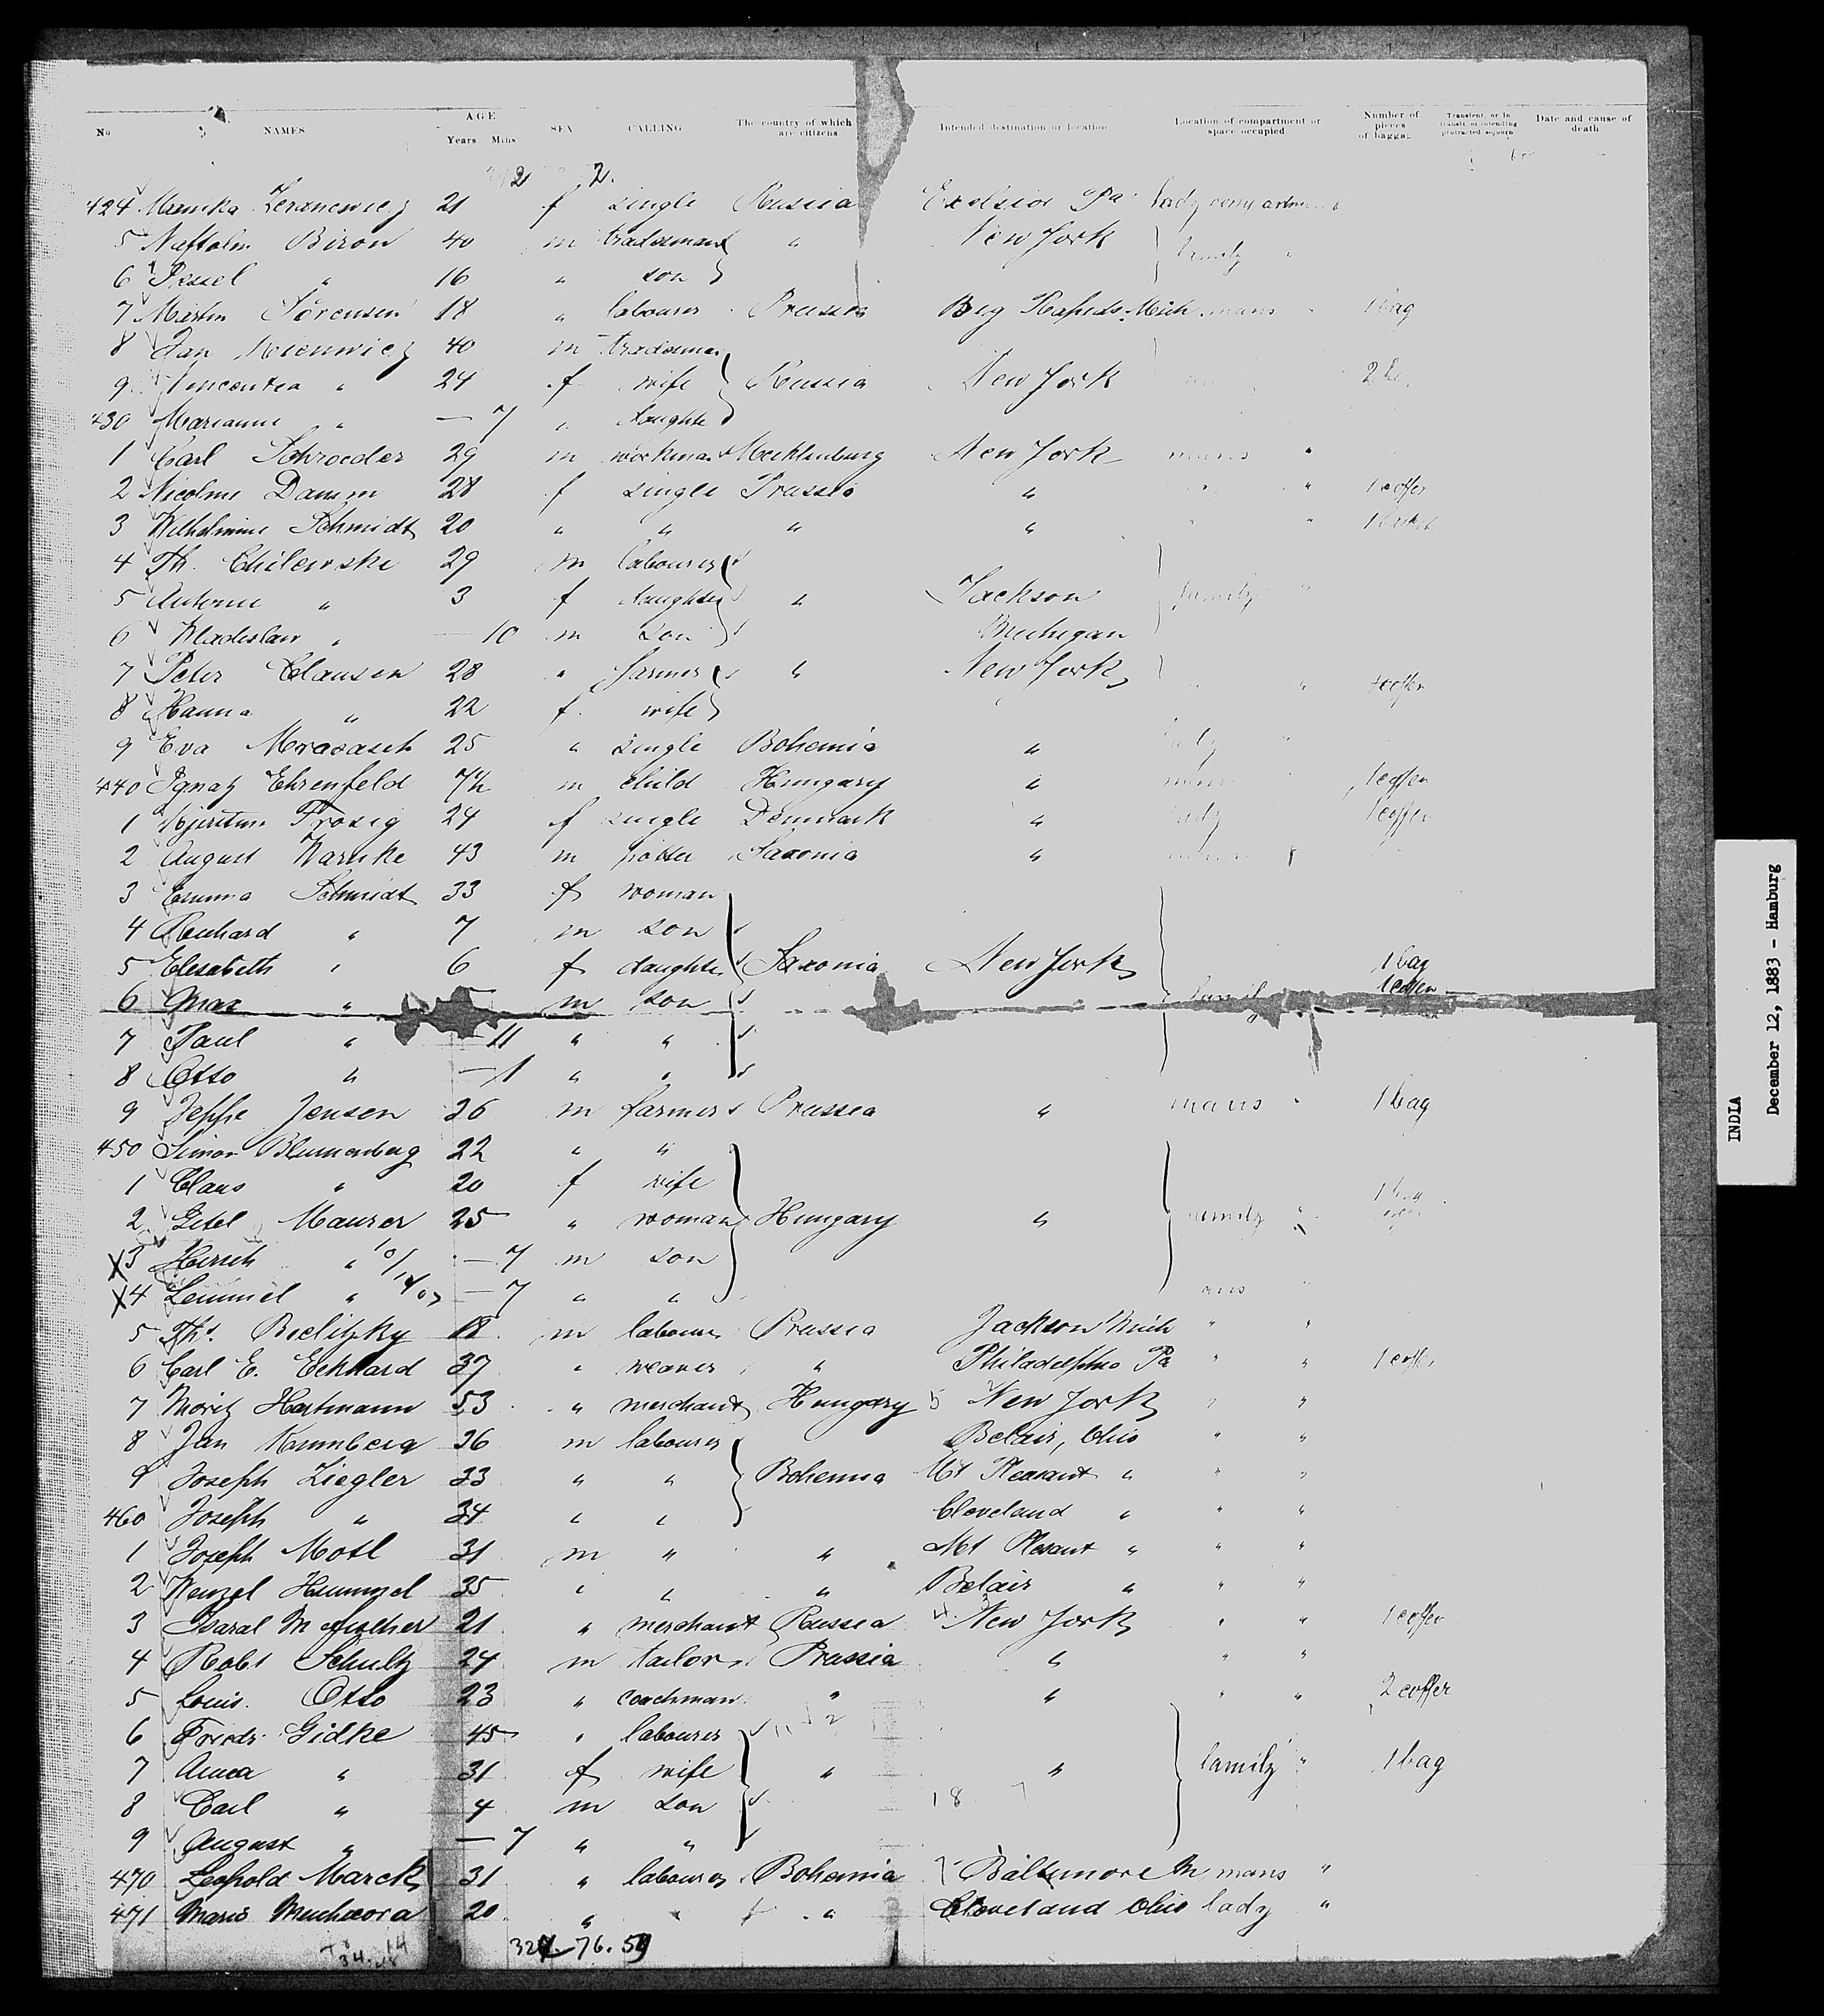 No NAMES AGE Years Mths SEX CALLING The country of which are citizens Intended destination or location Location of compartment or space occupied Number of pieces of baggage Transient, or in transit or intending protracted sojourn Date and cause of death
424 21 f single Russia Excelsior Pa lady
5 Biron 40 m "  New York family "
6 " 16 " son
7 Martin Sörensen 18 " labourer Prussia Big Rapids Mich. mans " 1 bag
8 Jan 40 m tradesman
9 " 24 f wife Russia New York 2
430 Marianne " — 7 " daughter
1 Carl Schroeder 29 m workman Mecklenburg New York mans "
2 Nicoline Damm 28 f single Prussia " " " 1 coffer
3 Wilhelmine Schmidt 20 " " " " " " 1 basket
4 Th. Chilewski 29 m labourer
5 Antonie " 3 f daughter " Jackson family "
6 Wladislaw " — 10 m son Michigan
7 Peter Clausen 28 " farmer " New York " 1 coffer
8 Hanna " 22 f wife
9 Eva 25 " single Bohemia " lady "
440 Ignatz Ehrenfeld 7½ m child Hungary " 1 coffer
1 Frosig 24 f single Denmark " lady 1 coffer
2 August Warnke 43 m potter Saxonia "
3 Emma Schmidt 33 f woman
4 Richard " 7 m son
5 Elisabeth " 6 f daughter Saxonia New York 1 bag
6 Max " m son 1 coffer
7 Paul " — 11 " "
8 Otto " — 1 " "
9 Jeppe Jensen 26 m farmer Prussia " mans " 1 bag
450 Simon Blumenberg 22 " "
1 Claus " 20 f wife
2 Gitel Maurer 25 " woman Hungary " family " 1 bag
X3 Hirsch " — 7 m son
X4 " — 7 " "
5 Ths. Bielitzky 18 m labourer Prussia Jackson Mich " "
6 Carl E. Eckhard 37 " weaver " Philadelphia Pa " " 1 coffer
7 Moritz Hartmann 53 " merchant Hungary New York " "
8 Jan 36 m labourer Belair, Ohio " "
9 Joseph Ziegler 33 " " Bohemia Mt Pleasant " " "
460 Joseph " 34 " " Cleveland " " "
1 Joseph Motl 31 m " " Mt Plesant " " "
2 Wenzel Hummel 35 " " " Belair " " "
3 21 " merchant Russia New York " " 1 coffer
4 Robt Schultz 24 m tailor Prussia " " "
5 Louis Otto 23 " coachman " " " " 2 coffer
6 Friedr. Gidke 45 " labourer
7 Anna " 31 f wife " " family " 1 bag
8 Carl " 4 m son 18
9 August " — 7 " "
470 Leopold Marck 31 " labourer Bohemia Baltimore M mans "
471 20 " " Cleveland Ohio lady "
INDIA
December 12, 1883 - Hamburg